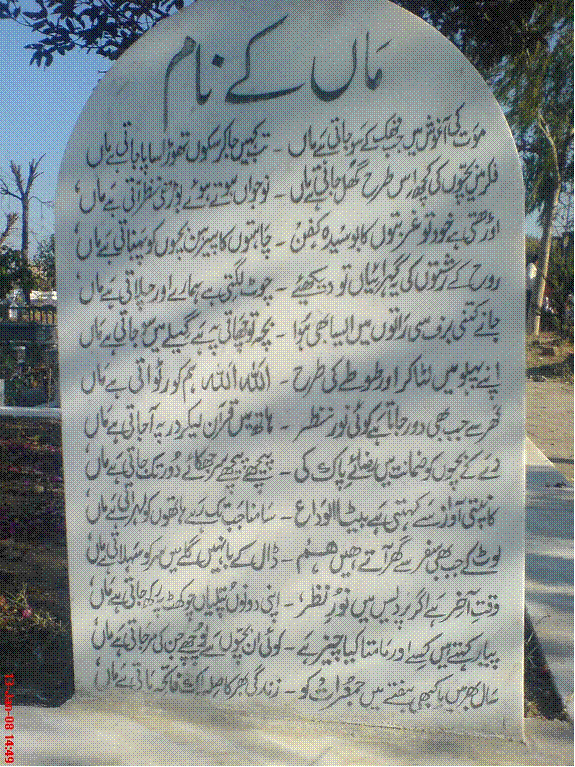 ماں کے نام
موت کی آغوش میں جب تھک کے سو جاتی ہے ماں - تب کہیں جا کر سکوں تھوڑا سا پا جاتی ہے ماں
فکر میں بچوں کی کچھ اس طرح گھل جاتی ہے ماں - نوجواں ہوتے ہوئے بوڑھی نظر آتی ہے ماں
اوڑھتی ہے خود تو غربتوں کا بوسیدہ کفن - چاہتوں کا پیرہن بچوں کو پہناتی ہے ماں
روح کے رشتوں کی گہرائیاں تو دیکھئے - چوٹ لگتی ہے ہمارے اور چلاتی ہے ماں
جانے کتنی برف سی راتوں میں ایسا بھی ہوا - بچہ تو چھاتی پہ ہے گیلے میں سو جاتی ہے ماں
اپنے پہلو میں لٹا کر اور طوطے کی طرح - اللہ اللہ ہم کو رٹواتی ہے ماں
گھر سے جب بھی دور جاتا ہے کوئی نور نظر - ہاتھ میں قرآن لیکر در پہ آ جاتی ہے ماں
دے کے بچوں کو ضمانت میں رضائے پاک کی - پیچھے پیچھے سر جھکائے دور تک جاتی ہے ماں
کانپتی آواز سے کہتی ہے بیٹا الوداع - سامنا جب تک رہے ہاتھوں کو لہراتی ہے ماں
لوٹ کے جب بھی سفر سے گھر آتے ہیں ہم - ڈال کے بانہیں گلے میں سر کو سہلاتی ہے ماں
وقت آخر ہے اگر پردیس میں نور نظر - اپنی دونوں پتلیاں چوکھٹ پہ رکھ جاتی ہے ماں
پیار کہتے ہیں کسے اور مامتا کیا چیز ہے - کوئی ان بچوں سے پوچھے جن کی مر جاتی ہے ماں
سال بھر میں یا کبھی ہفتے میں جمعرات کو - زندگی بھر کا صلہ اک فاتحہ پاتی ہے ماں
13-Jan-08 14:49